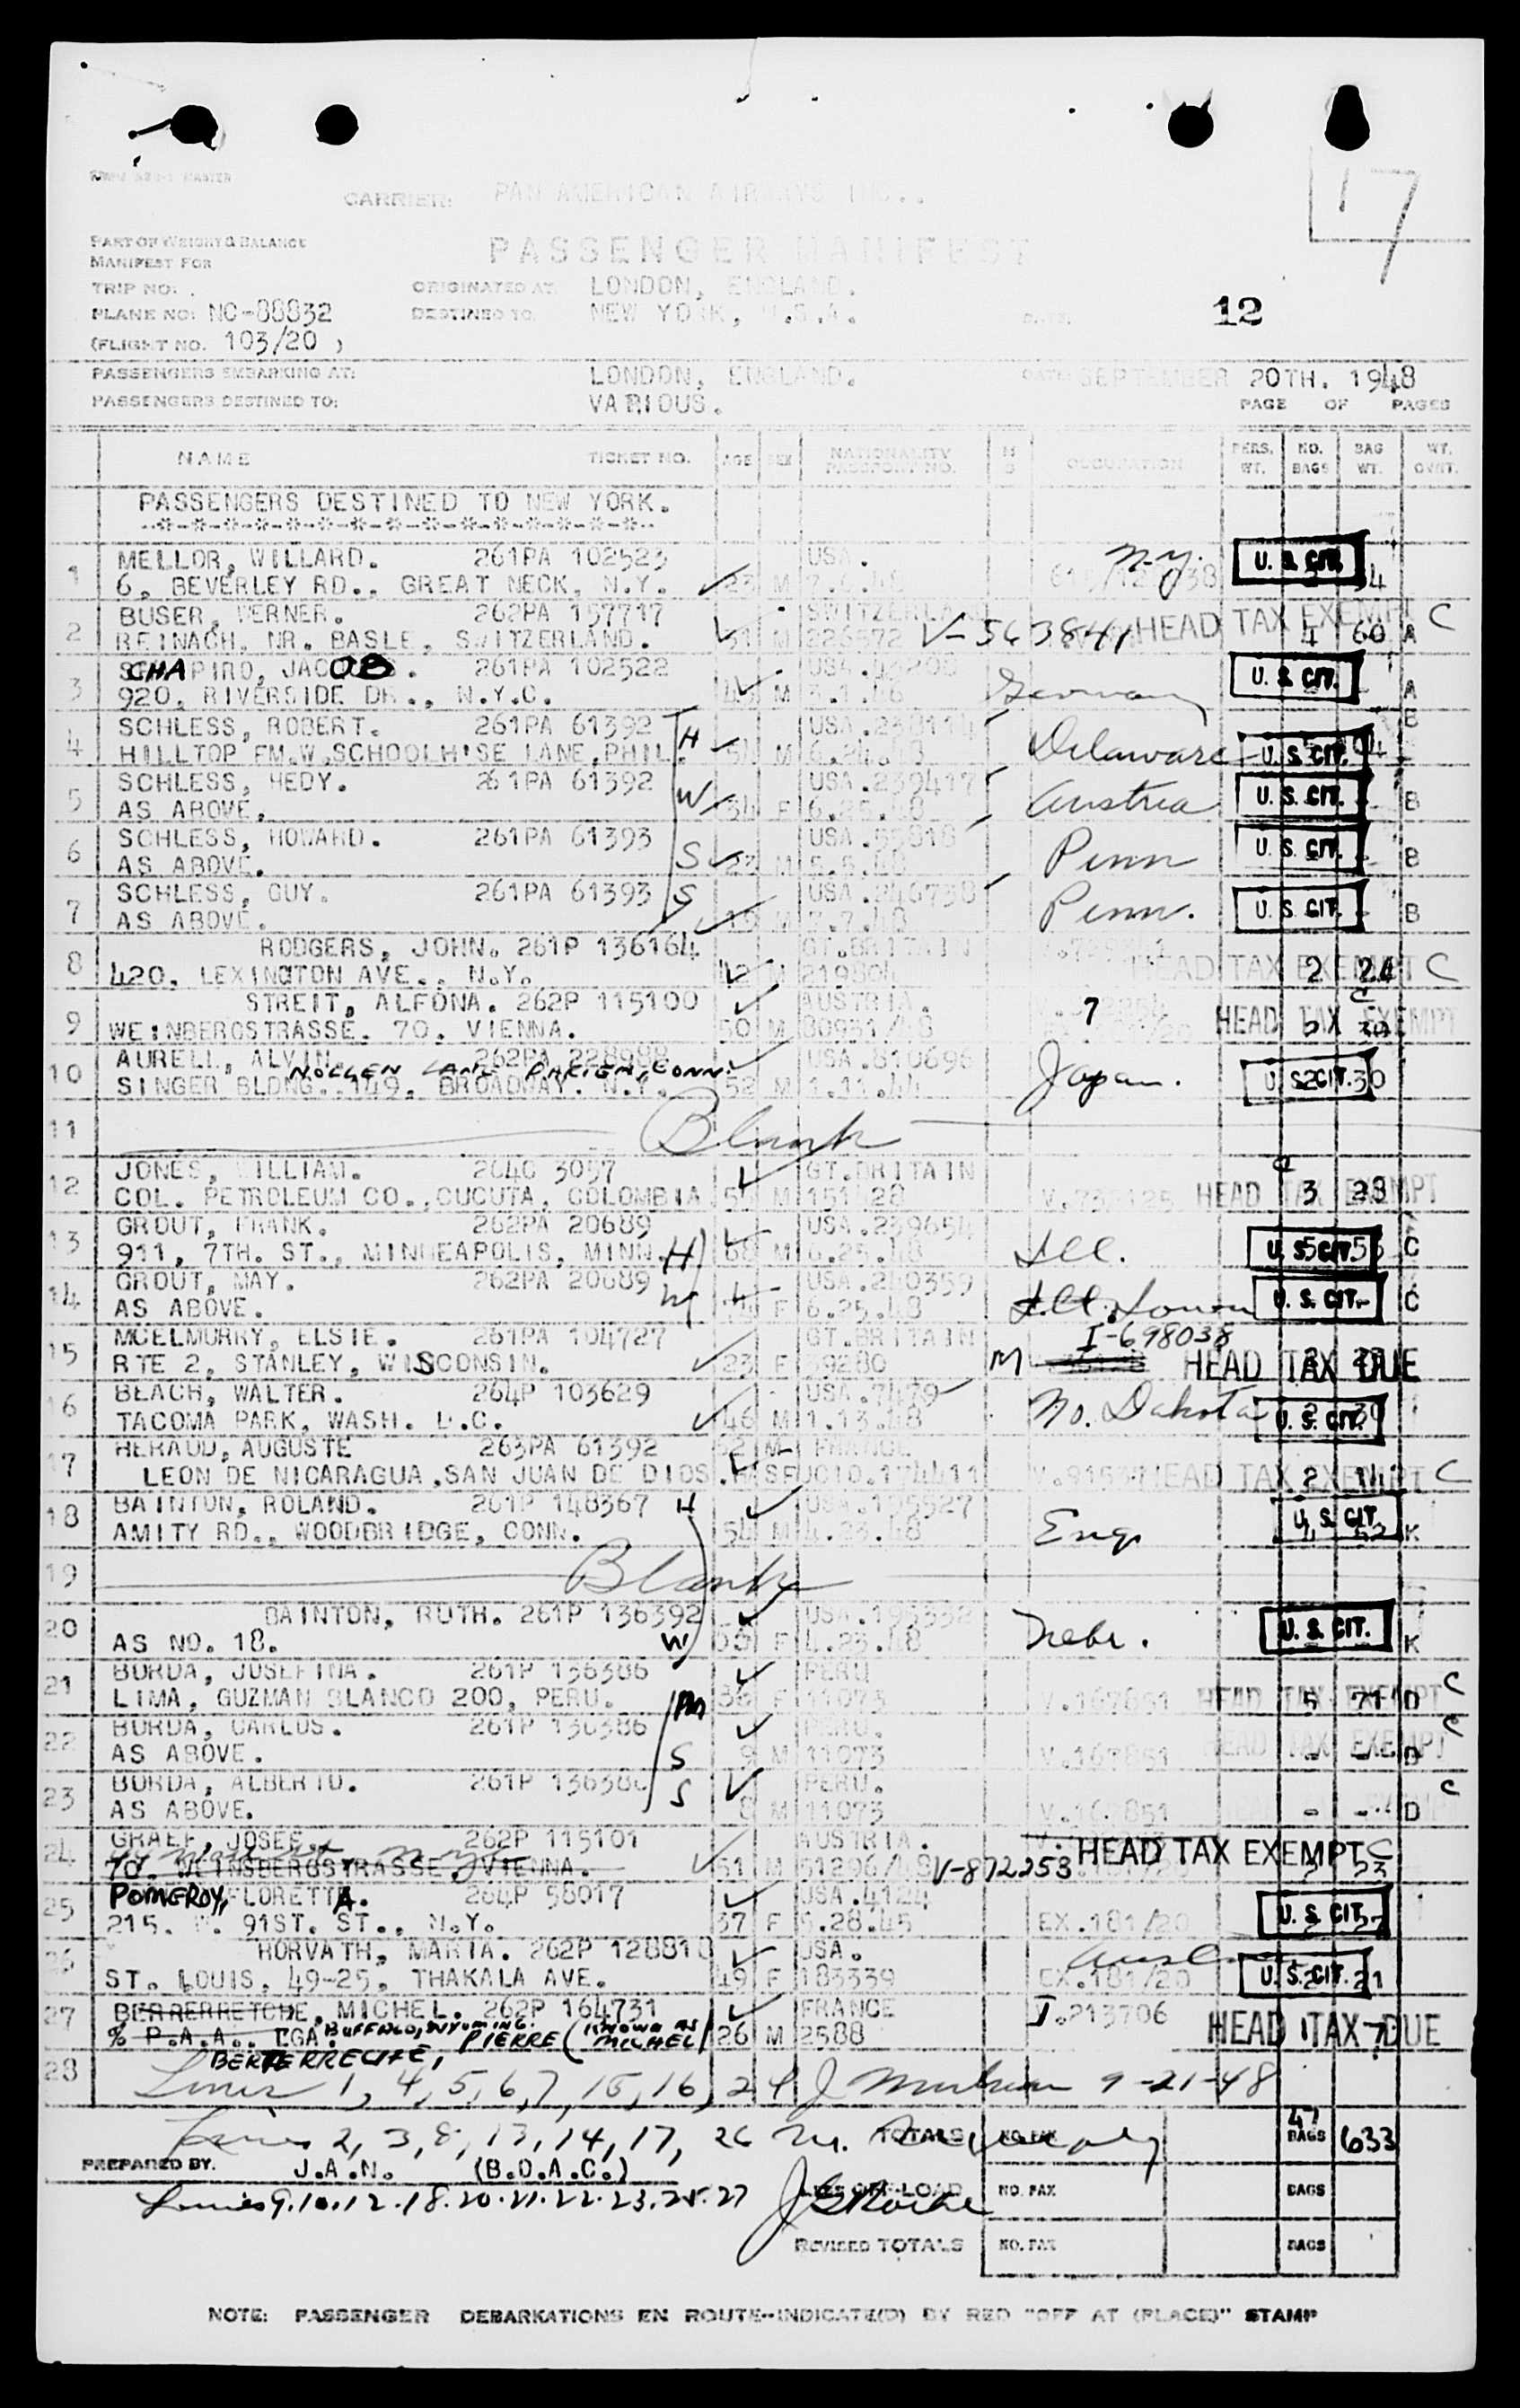 17
CARRIER: PAN AMERICAN AIRWAYS INC..
PART OF WEIGHT & BALANCE
MANIFEST FOR
PASSENGER MANIFEST
TRIP NO:
ORIGINATED AT: LONDON, ENGLAND.
PLANE NO: NC-88832
DESTINED TO. NEW YORK, U.S.A.
DATE:
12
(FLIGHT NO. 103/20 )
PASSENGERS EMBARKING AT: LONDON, ENGLAND. DATE SEPTEMBER 20TH. 1948
PASSENGERS DESTINED TO: VARIOUS.
PAGE OF PAGES
NAME TICKET NO. AGE SEX NATIONALITY PASSPORT NO. M S OCCUPATION PERS. WT. NO. BAGS BAG WT. WT. OVNT.
PASSENGERS DESTINED TO NEW YORK.
1 MELLOR, WILLARD. 261PA 102523 USA. N.Y. U. S. CIT.
6, BEVERLEY RD., GREAT NECK, N.Y. 23 M
2 BUSER, WERNER. 262PA 157717 SWITZERLAND HEAD TAX EXEMPT C
REINACH, NR. BASLE, SWITZERLAND. 31 M 226572 V-563841 4 60 A
3 CHAPIRO, JACOB. 261PA 102522 USA. U. S. CIT.
920, RIVERSIDE DR., N.Y.C. M 3.1.48 Germany A
4 SCHLESS, ROBERT. 261PA 61392 H USA.238114 B
HILLTOP FM.W.SCHOOLH'SE LANE,PHIL. 54 M Delaware U. S. CIT.
5 SCHLESS, HEDY. 261PA 61392 USA.239417 U. S. CIT.
AS ABOVE. W 34 F 6.25.48 Austria B
6 SCHLESS, HOWARD. 261PA 61393 USA.55818 U. S. CIT.
AS ABOVE. S 23 M 5.5.48 Penn B
7 SCHLESS, GUY. 261PA 61393 S USA.246738 U. S. CIT.
AS ABOVE. 19 M 7.7.48 Penn. B
8 RODGERS, JOHN. 261P 136164 GT.BRITAIN
420, LEXINGTON AVE., N.Y. 42 M 219804 HEAD TAX EXEMPT 2 24 C
9 STREIT, ALFONA. 262P 115100 AUSTRIA. 7 C
WEINBERGSTRASSE. 70. VIENNA. 50 M 80931/48 HEAD TAX EXEMPT
10 AURELL, ALVIN. 262PA 228988 USA.810696
NOLLEN LANE DARIEN, CONN.
SINGER BLDNG. 149, BROADWAY. N.Y. 52 M 1.11.44 Japan. U. S. CIT. 2 30
11 Blank
12 JONES, WILLIAM. 264C 3057 GT.BRITAIN C
COL. PETROLEUM CO.,CUCUTA, COLOMBIA 54 M 151428 HEAD TAX EXEMPT 3 28
13 GROUT, FRANK. 262PA 20689 USA.239654
911, 7TH. ST., MINNEAPOLIS, MINN. H 68 M 6.25.48 Ill. U. S. CIT. C
14 GROUT, MAY. 262PA 20689 USA.240359
AS ABOVE. W F 6.25.48 Iowa U. S. CIT. C
15 MCELMURRY, ELSIE. 261PA 104727 GT.BRITAIN I-698038
RTE 2, STANLEY, WISCONSIN. 23 F 39280 M HEAD TAX DUE
16 BEACH, WALTER. 264P 103629 USA.7479
TACOMA PARK, WASH. D.C. 46 M 1.13.48 No. Dakota U. S. CIT.
17 HERAUD, AUGUSTE 263PA 61392 52 M FRANCE
LEON DE NICARAGUA,SAN JUAN DE DIOS. HEAD TAX EXEMPT 2 C
18 BAINTON, ROLAND. 261P 148367 H USA.195527 U. S. CIT.
AMITY RD., WOODBRIDGE, CONN. 54 M 4.23.48 Eng K
19 Blank
20 BAINTON, RUTH. 261P 136392 USA.195332 U. S. CIT.
AS NO. 18. W F 4.23.48 Nebr. K
21 BORDA, JOSEFINA. 261P 136386 PERU C
LIMA, GUZMAN BLANCO 200, PERU. M 36 F 11073 V.167851 HEAD TAX EXEMPT 5 71 D
22 BORDA, CARLOS. 261P 136386 PERU. C
AS ABOVE. S 9 M 11073 V.167851 HEAD TAX EXEMPT - - D
23 BORDA, ALBERTO. 261P 136386 PERU. C
AS ABOVE. S 8 M 11073 V.167851 - - D
24 GRAEF, JOSEF. 262P 115101 AUSTRIA. HEAD TAX EXEMPT C
70. WEINSBERGSTRASSE, VIENNA. 51 M 51296/48 V-872253 23
25 POMEROY, FLORETTA. 264P 58017 USA.4124
215. W. 91ST. ST., N.Y. 37 F 5.28.45 EX.181/20 U. S. CIT.
26 HORVATH, MARIA. 262P 128818 USA. Austria
ST. LOUIS, 49-25, THAKALA AVE. 49 F 183339 EX.181/20 U. S. CIT. 21
27 BERRERRETCHE, MICHEL. 262P 164731 FRANCE I.213706
% P.A.A., LGA. BUFFALO, WYOMING. PIERRE (KNOWN AS MICHEL) 26 M 2588 HEAD TAX DUE 1 7
BERTERRECHE,
28 Lines 1, 4, 5, 6, 7, 15, 16, 24 9-21-48
Lines 2, 3, 8, 13, 14, 17, 26 TOTALS NO. PAX 47 BAGS 633
PREPARED BY. J.A.N. (B.O.A.C.)
Lines 9.10.12.18.20.21.22.23.25.27 LESS OFF-LOAD NO. PAX BAGS
REVISED TOTALS NO. PAX BAGS
NOTE: PASSENGER DEBARKATIONS EN ROUTE--INDICATE(D) BY RED "OFF AT (PLACE)" STAMP